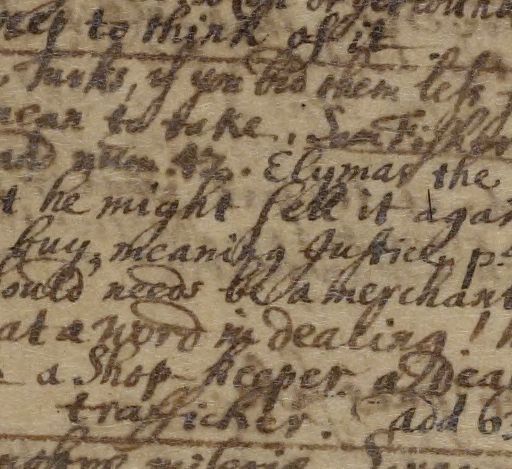 to think of it
if you bid them less
mean to take. See Fisher
add num. 47. Elymas the
t he might sell it again
buy, meaning Justice, p.
ould needs be a merchant
at a word in dealing!
a Shop-keeper. a Deal
trafficker. add 63